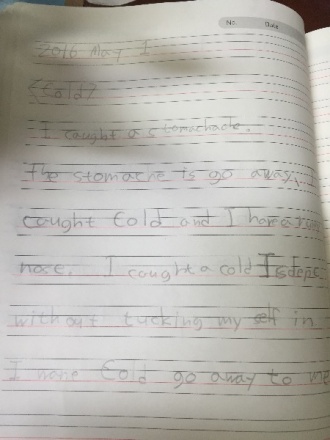 No. Date
2016 May 1
<Cold>
I caught a stomachache.
The stomache is go away.
caught Cold and I have a
nose. I caught a cold I
without tucking my self in
I hope Cold go away to me